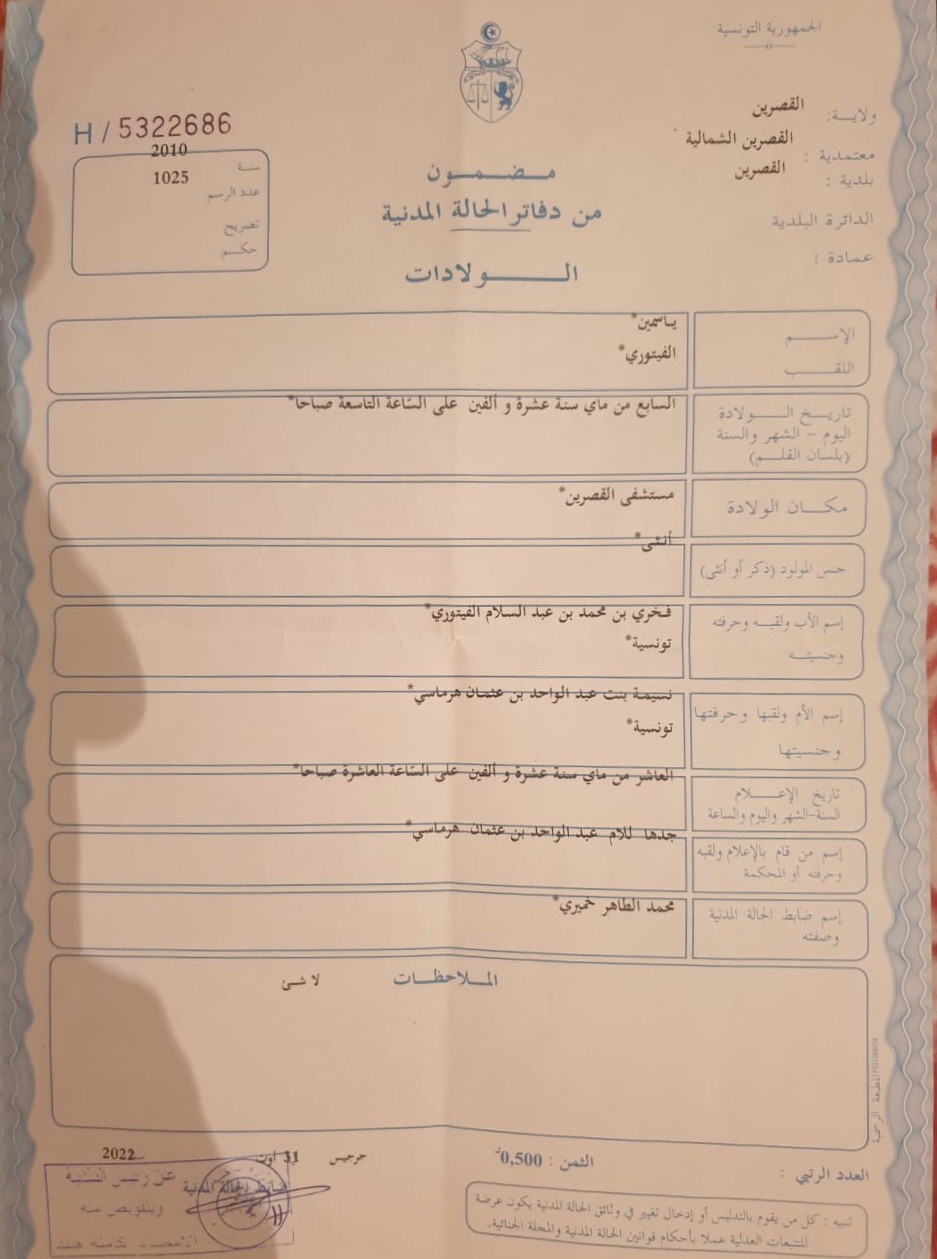 الجمهورية التونسية
ولاية: القصرين
معتمدية: القصرين الشمالية
بلدية: القصرين
الدائرة البلدية
عمادة:
H / 5322686
سنة 2010
عدد الرسم 1025
تصريح
حكم
مضمون
من دفاتر الحالة المدنية
الولادات
الإسم ياسمين*
اللقب الفيتوري*
تاريخ الولادة السابع من ماي سنة عشرة و ألفين على الساعة التاسعة صباحا*
اليوم - الشهر والسنة
(بلسان القلم)
مكان الولادة مستشفى القصرين*
جنس المولود (ذكر أو أنثى) أنثى*
إسم الأب ولقبه وحرفته فخري بن محمد بن عبد السلام الفيتوري*
وجنسيته تونسية*
إسم الأم ولقبها وحرفتها نسيمة بنت عبد الواحد بن عثمان هرماسي*
وجنسيتها تونسية*
تاريخ الإعلام العاشر من ماي سنة عشرة و ألفين على الساعة العاشرة صباحا*
السنة-الشهر واليوم والساعة
إسم من قام بالإعلام ولقبه جدها للام عبد الواحد بن عثمان هرماسي*
وحرفته أو المحكمة
إسم ضابط الحالة المدنية محمد الطاهر خميري*
وصفته
الملاحظات لا شئ
المطبعة الرسمية
العدد الرتبي :
الثمن : 0,500د
جرجيس 31 أوت 2022
ضابط الحالة المدنية
تنبيه : كل من يقوم بالتدليس أو إدخال تغيير في وثائق الحالة المدنية يكون عرضة
للتتبعات العدلية عملا بأحكام قوانين الحالة المدنية والمجلة الجنائية.
وبتفويض منه
الإمضاء